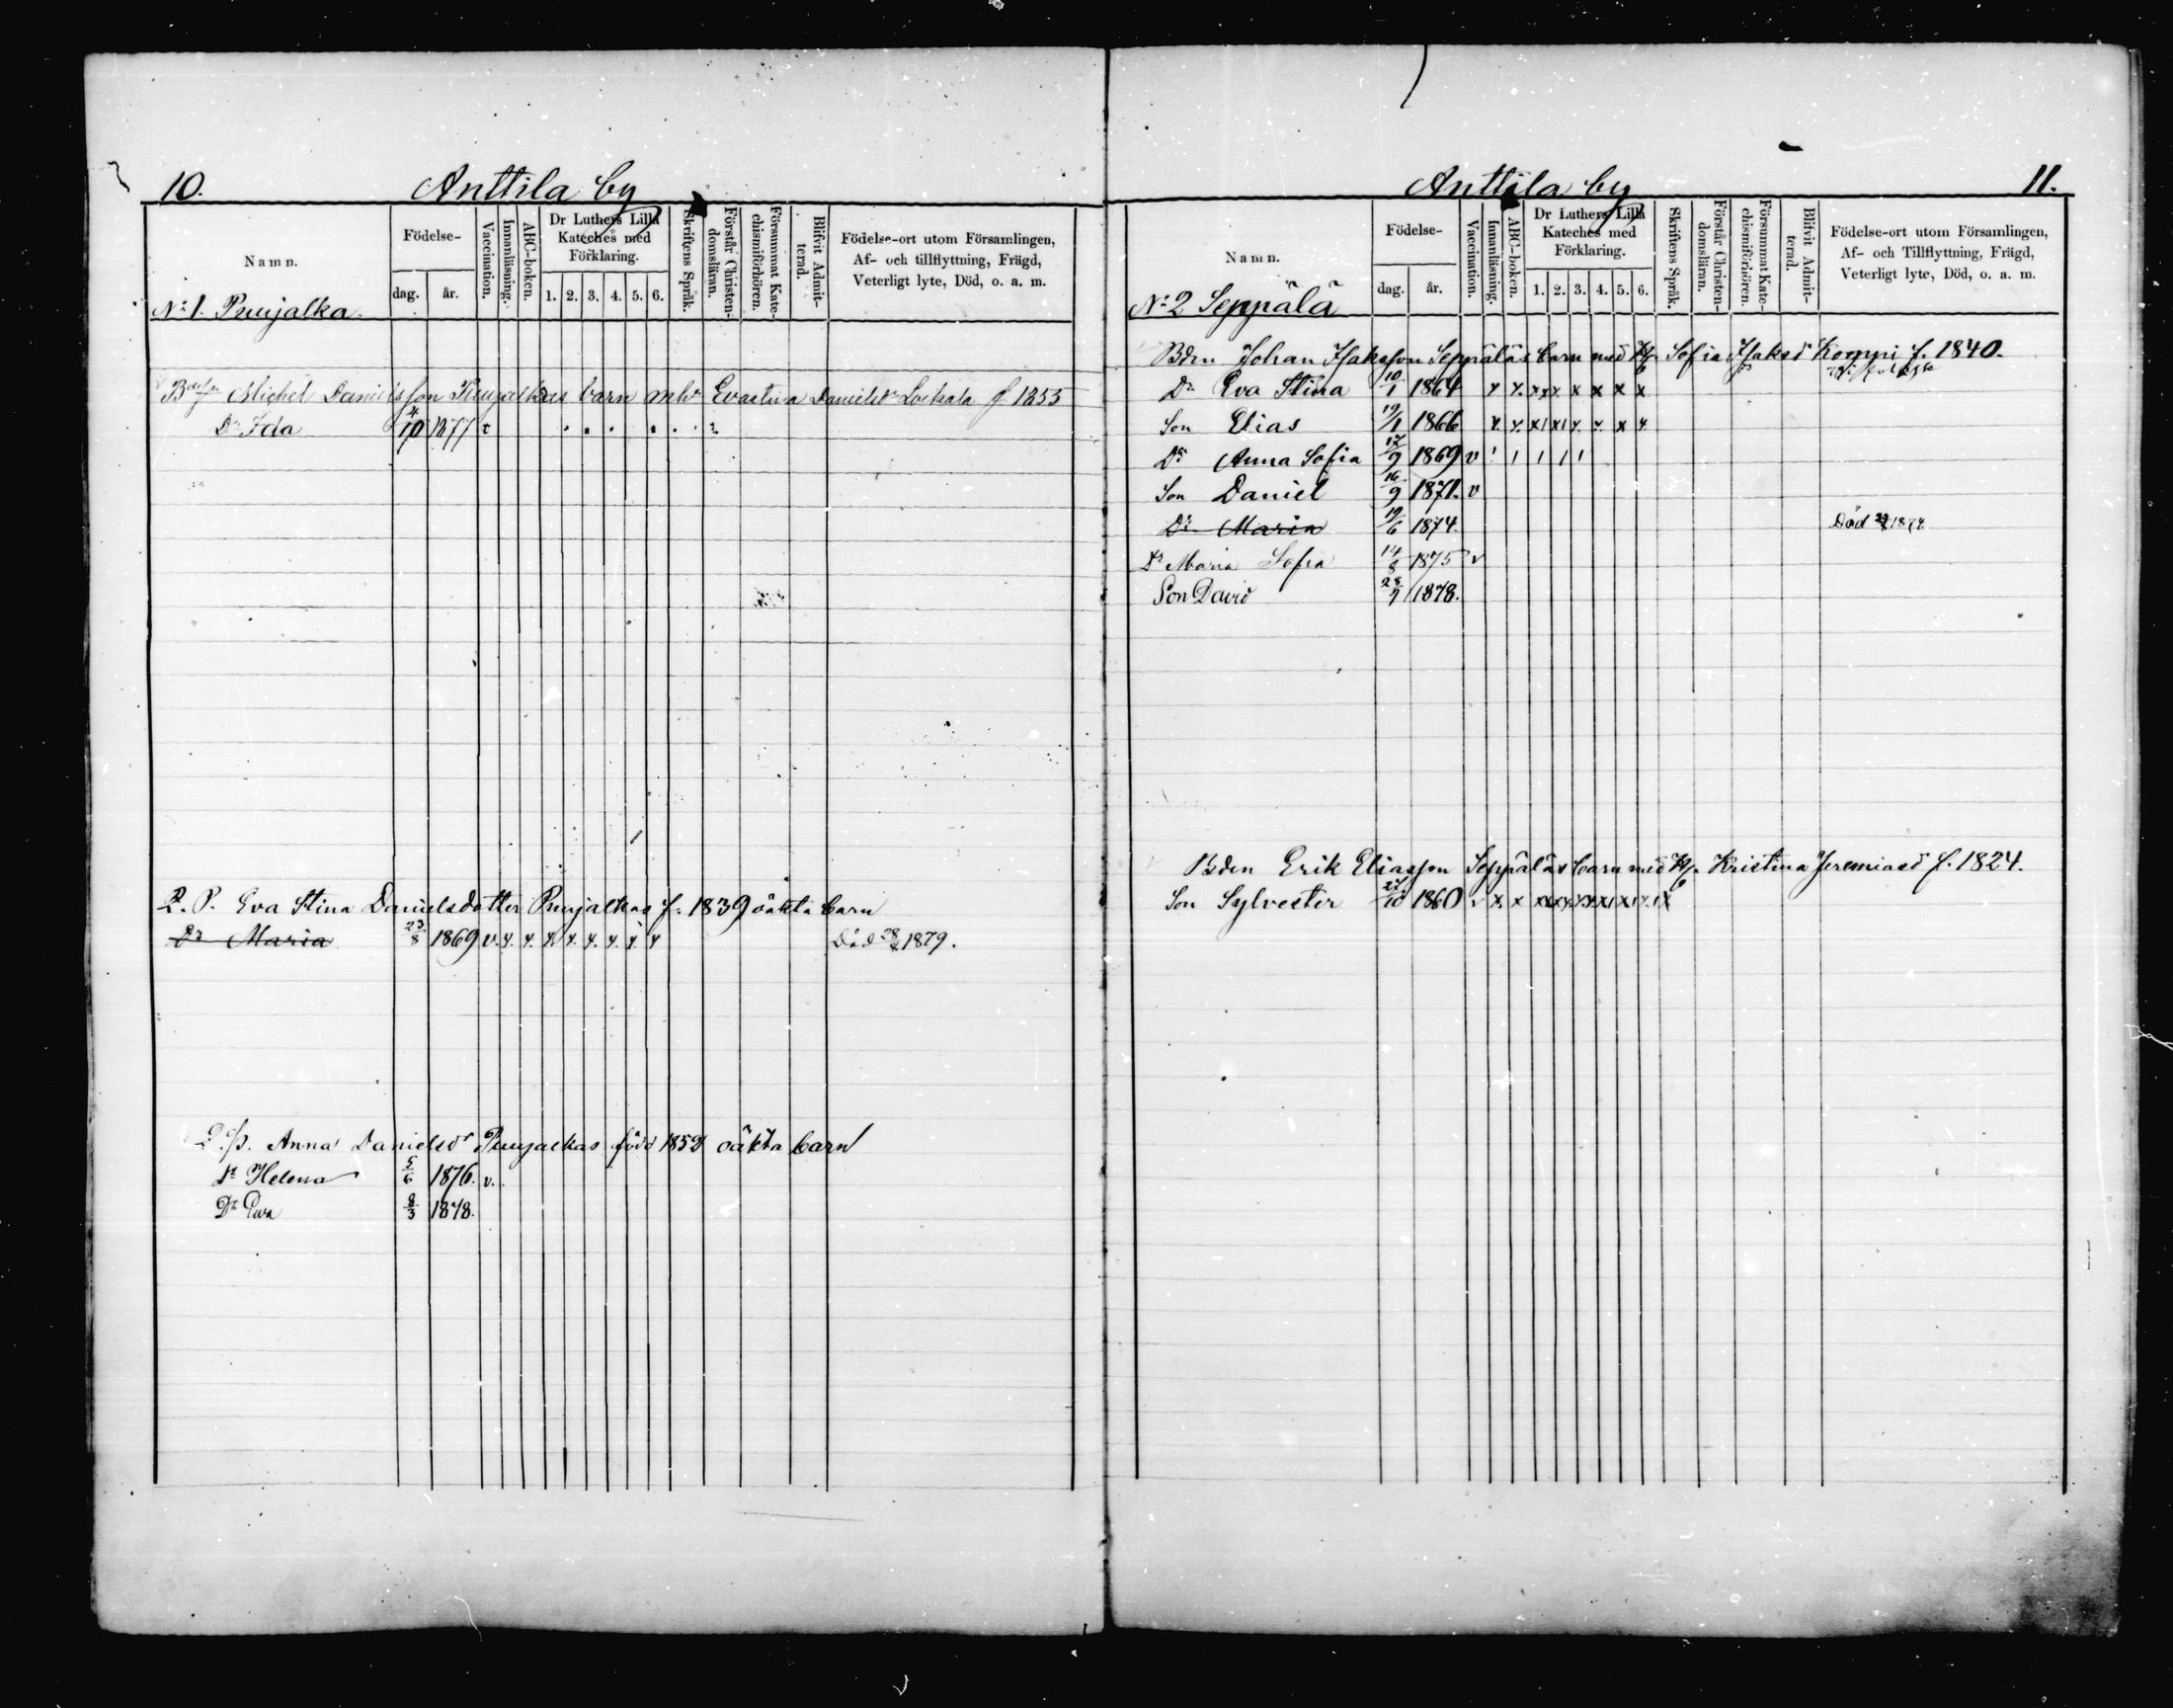 10.
Anttila by
Namn.
Födelse-
dag.
år.
Vaccination.
Innanläsning.
ABC-boken.
Dr Luthers Lilla
Kateches med
Förklaring.
1. 2. 3. 4. 5. 6.
Skriftens Språk.
Förstår Christen-
domsläran.
Försummat Kate-
chismiförhören.
Blifvit Admit-
terad.
Födelse-ort utom Församlingen,
Af- och tillflyttning, Frägd,
Veterligt lyte, Död, o. a. m.
No 1. Puujalka.
Michel Danielsson Puujalkas barn mhu Evastina Danielsdr f 1855
Dr Ida 4/10 1877
Q. P. Eva Stina Danielsdotter Puujalkas f. 1839 oäkta barn
Dr Maria 23/8 1869 v. x. x. x. x. x. x. x. x Död 1879.
Q. p. Anna Danielsdr Puujalkas född 1852 oäkta barn
Dr Helena 5/6 1876. v.
Dr Eva 8/3 1878.
11.
Anttila by
Namn.
Födelse-
dag.
år.
Vaccination.
Innanläsning.
ABC-boken.
Dr Luthers Lilla
Kateches med
Förklaring.
1. 2. 3. 4. 5. 6.
Skriftens Språk.
Förstår Christen-
domsläran.
Försummat Kate-
chismiförhören.
Blifvit Admit-
terad.
Födelse-ort utom Församlingen,
Af- och Tillflyttning, Frägd,
Veterligt lyte, Död, o. a. m.
No 2 Seppälä
Bdn Johan Isaksson Seppäläs barn med H. Sofia Isaksd Komppi f. 1840.
Dr Eva Stina 10/1 1864 x x. xxx x x x x
Son Elias 19/1 1866 x. x. x1 x1 x. x. x x
Dr Anna Sofia 17/9 1869 v
Son Daniel 16/9 1871. v
Dr Maria 19/6 1874. Död 1874.
Dr Maria Sofia 14/8 1875 v
Son David 28/7 1878.
Bden Erik Eliasson Seppäläs barn med H. Kristina Jeremiasd f. 1824.
Son Sylvester 27/10 1860 v x. x